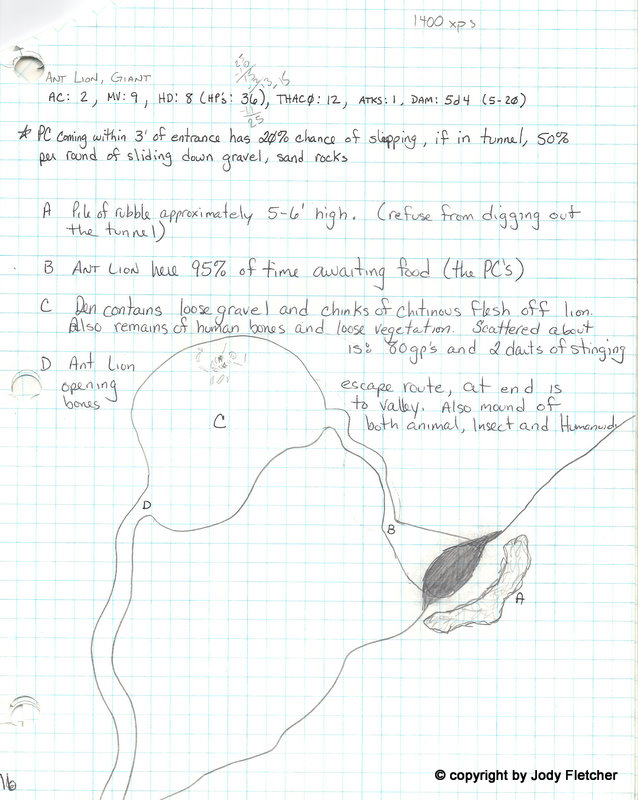 1400 xps
ANT LION, GIANT
AC: 2, MV: 9, HD: 8 (HP's: 36), THAC0: 12, ATKS: 1, DAM: 5d4 (5-20)
25
* PC coming within 3' of entrance has 20% chance of slepping, if in tunnel, 50%
per round of sliding down gravel, sand rocks
A Pile of rubble approximately 5-6' high. (refuse from digging out
the tunnel)
B ANT LION here 95% of time awaiting food (the PC's)
C Den contains loose gravel and chinks of chitinous flesh off lion.
Also remains of human bones and loose vegetation. Scattered about
is: 80gp's and 2 darts of stinging
D Ant Lion escape route, at end is
opening to valley. Also mound of
bones both animal, Insect and Humanoid
C
D
B
A
16
© copyright by Jody Fletcher